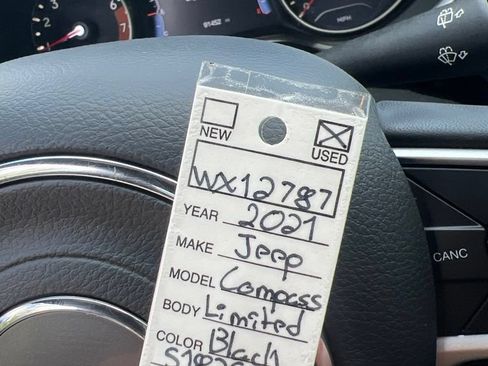 91452
MPH
NEW
USED
WX12787
YEAR 2021
MAKE Jeep
MODEL Compass
BODY Limited
COLOR Black
CANC